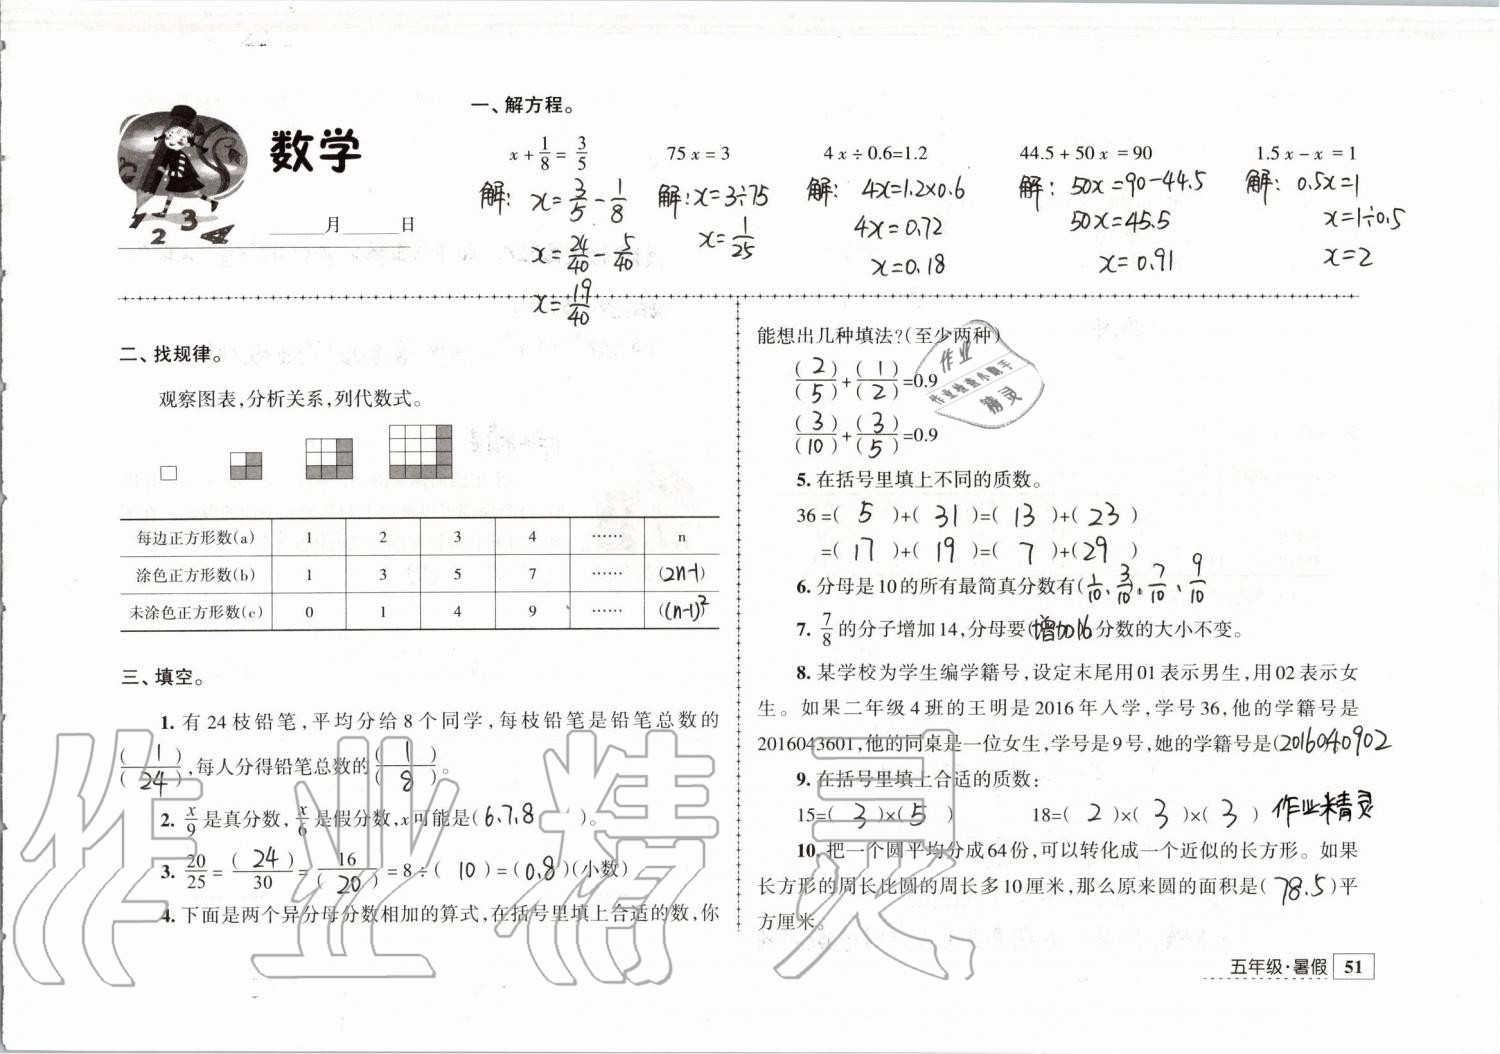 数学
______月______日
一、解方程。
x+1/8=3/5 75x=3 4x÷0.6=1.2 44.5+50x=90 1.5x-x=1
解: x=3/5-1/8 解:x=3÷75 解: 4x=1.2×0.6 解: 50x=90-44.5 解: 0.5x=1
x=24/40-5/40 x=1/25 4x=0.72 50x=45.5 x=1÷0.5
x=19/40 x=0.18 x=0.91 x=2
二、找规律。
观察图表,分析关系,列代数式。
每边正方形数(a) 1 2 3 4 …… n
涂色正方形数(b) 1 3 5 7 …… (2n-1)
未涂色正方形数(c) 0 1 4 9 …… ((n-1)²
三、填空。
1. 有24枝铅笔,平均分给8个同学,每枝铅笔是铅笔总数的
(1)/(24),每人分得铅笔总数的(1)/(8)。
2. x/9是真分数,x/6是假分数,x可能是(6,7,8 )。
3. 20/25=(24)/30=16/(20)=8÷(10)=(0.8)(小数)
4. 下面是两个异分母分数相加的算式,在括号里填上合适的数,你
能想出几种填法?(至少两种)
(2)/(5)+(1)/(2)=0.9
(3)/(10)+(3)/(5)=0.9
5. 在括号里填上不同的质数。
36=( 5 )+( 31 )=( 13 )+( 23 )
=( 17 )+( 19 )=( 7 )+( 29 )
6. 分母是10的所有最简真分数有(1/10、3/10、7/10、9/10
7. 7/8的分子增加14,分母要(增加16分数的大小不变。
8. 某学校为学生编学籍号,设定末尾用01表示男生,用02表示女
生。如果二年级4班的王明是2016年入学,学号36,他的学籍号是
2016043601,他的同桌是一位女生,学号是9号,她的学籍号是(2016040902
9. 在括号里填上合适的质数:
15=( 3 )×( 5 ) 18=( 2 )×( 3 )×( 3 ) 作业精灵
10. 把一个圆平均分成64份,可以转化成一个近似的长方形。如果
长方形的周长比圆的周长多10厘米,那么原来圆的面积是( 78.5 )平
方厘米。
五年级·暑假 51
作业
作业检查小助手
精灵
作业精灵